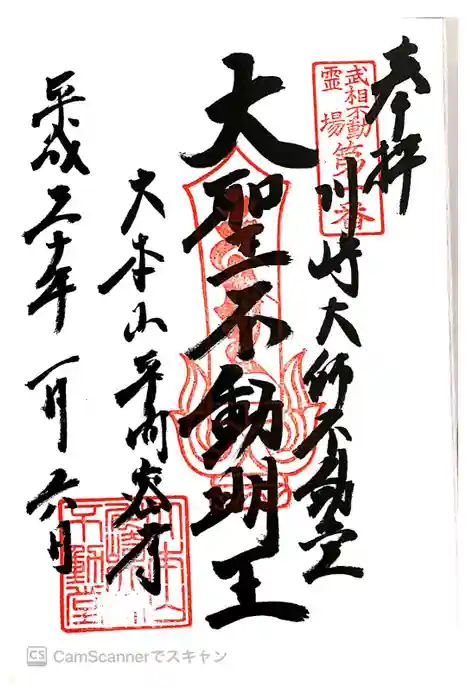 奉拝
武相不動
霊場第一番
川崎大師不動堂
大聖不動明王
大本山平間密寺
平成二十年一月六日
不動堂
CamScannerでスキャン